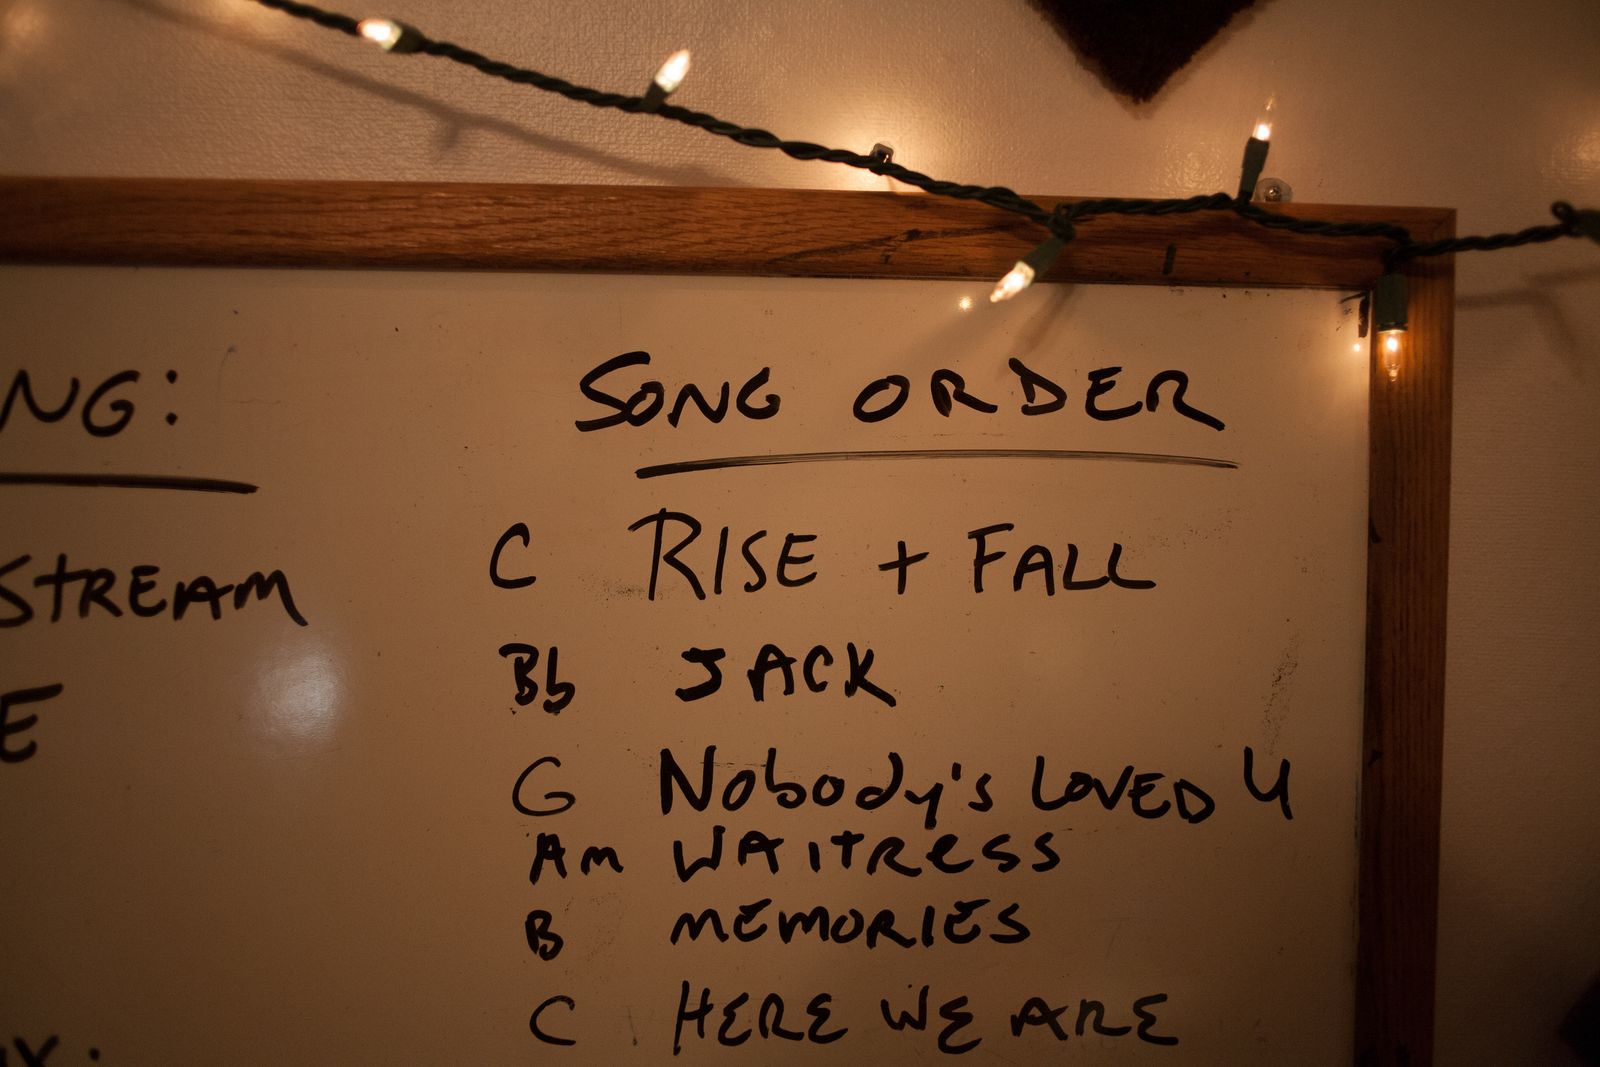 NG:
STREAM
E
SONG ORDER
C RISE + FALL
Bb JACK
G Nobody's LOVED U
Am WAITRESS
B MEMORIES
C HERE WE ARE